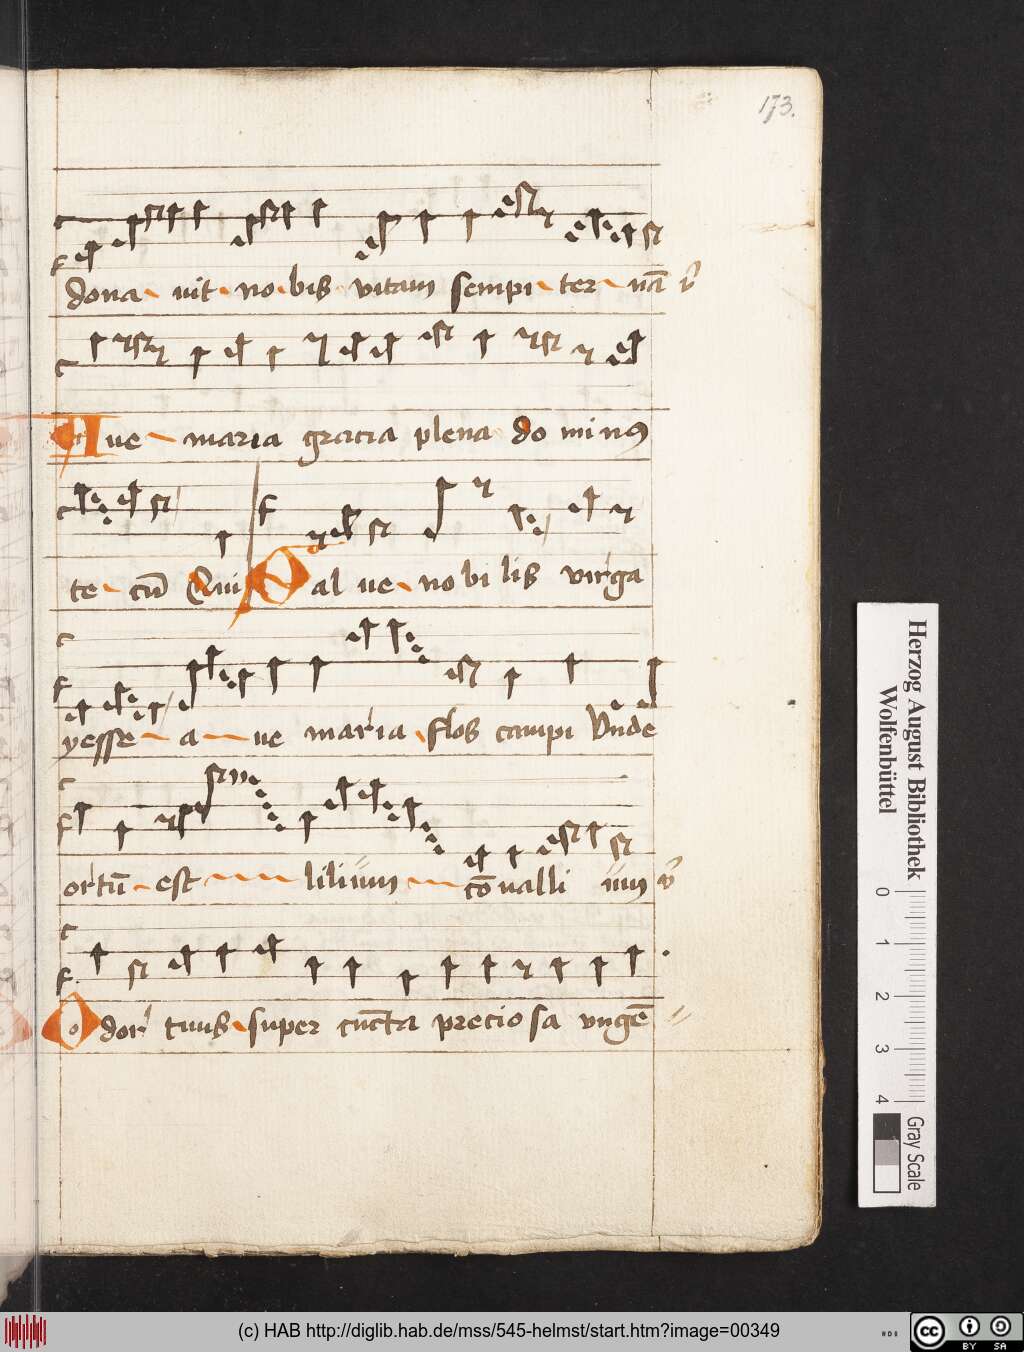 173.
dona - uit - no - bis - vitam sempi - ter - nā v̄
Aue - maria gracia plena do minus
te - cū Qui Sal ue - no bi lis virga
yesse - a - ue maria - flos campi Vnde
ortū - est - - - - lilium - - cōualli ium v̄
Odor tuus - super cuncta preciosa vngē
Herzog August Bibliothek
Wolfenbüttel
0 1 2 3 4
Gray Scale
(c) HAB http://diglib.hab.de/mss/545-helmst/start.htm?image=00349
cc BY SA